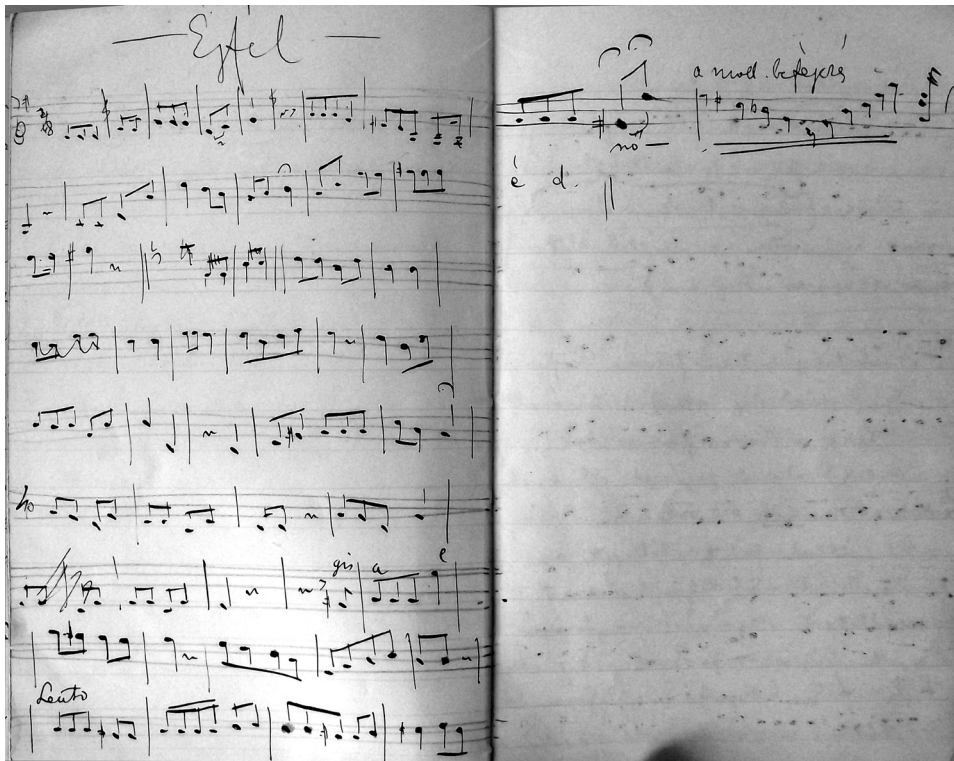 — Éjfél —
a moll. befejezés
nō —
é d.
gis a e
Lento